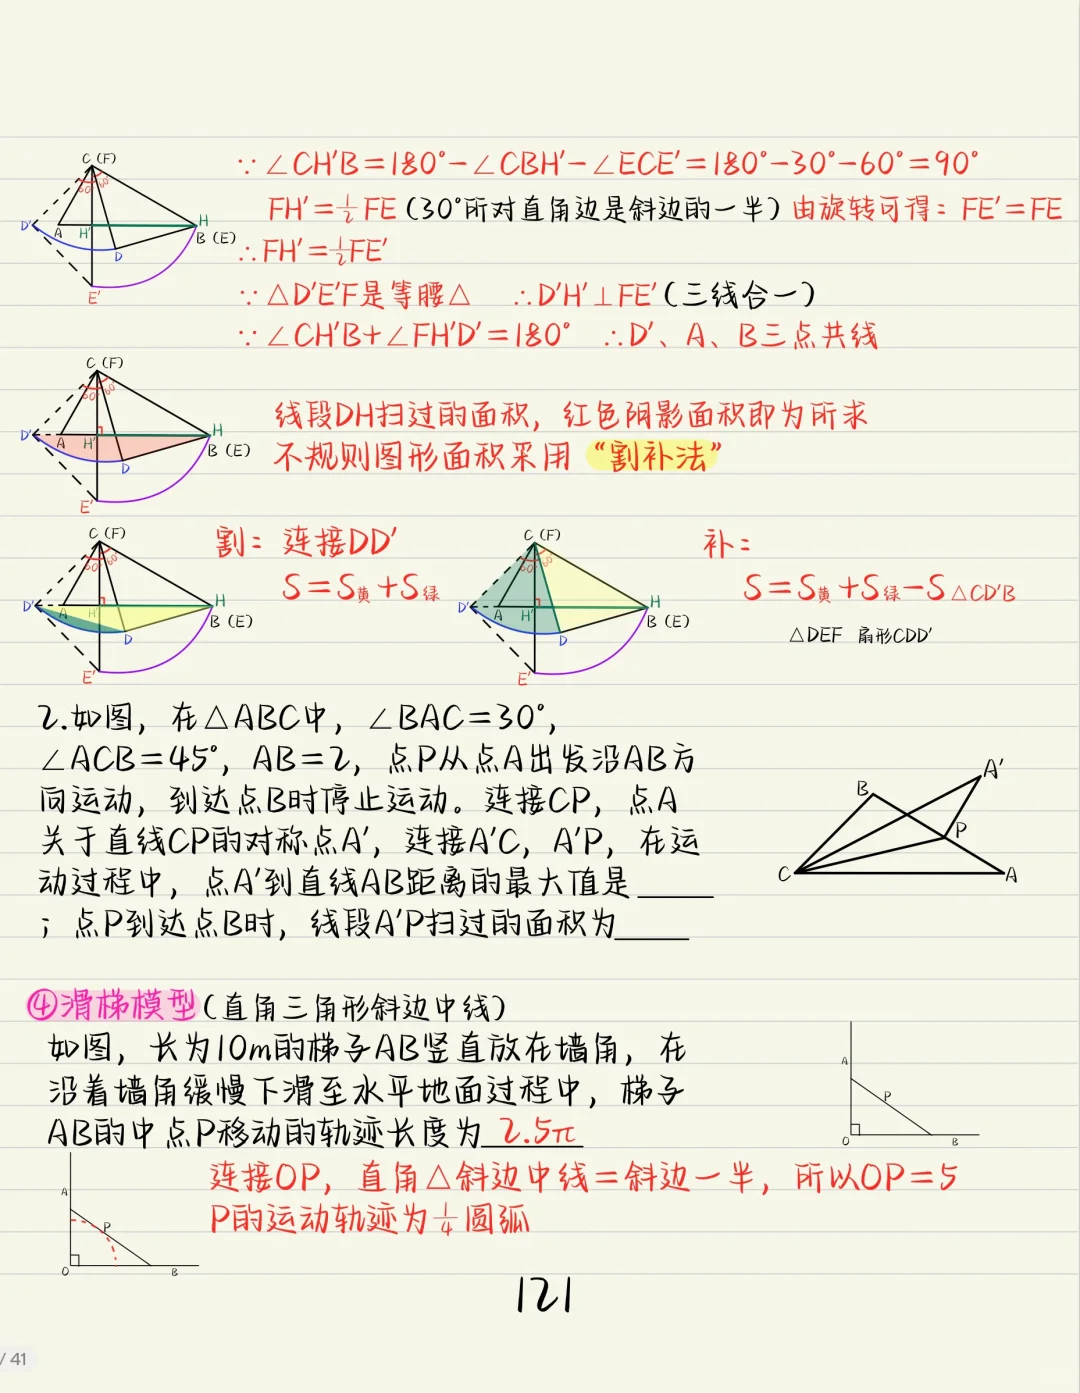 ∵∠CH′B=180°-∠CBH′-∠ECE′=180°-30°-60°=90°
FH′=½FE(30°所对直角边是斜边的一半)由旋转可得:FE′=FE
∴FH′=½FE′
∵△D′E′F是等腰△ ∴D′H′⊥FE′(三线合一)
∵∠CH′B+∠FH′D′=180° ∴D′、A、B三点共线
C (F)
60°
60°
D′
A
H′
H
B (E)
D
E′
线段DH扫过的面积,红色阴影面积即为所求
不规则图形面积采用“割补法”
C (F)
60°
60°
D′
A
H′
H
B (E)
D
E′
割:连接DD′
S=S黄+S绿
C (F)
60°
60°
D′
A
H′
H
B (E)
D
E′
补:
S=S黄+S绿-S△CD′B
△DEF 扇形CDD′
C (F)
60°
60°
D′
A
H′
H
B (E)
D
E′
2.如图,在△ABC中,∠BAC=30°,
∠ACB=45°,AB=2,点P从点A出发沿AB方
向运动,到达点B时停止运动。连接CP,点A
关于直线CP的对称点A′,连接A′C,A′P,在运
动过程中,点A′到直线AB距离的最大值是____
;点P到达点B时,线段A′P扫过的面积为____
A′
B
P
C
A
④滑梯模型(直角三角形斜边中线)
如图,长为10m的梯子AB竖直放在墙角,在
沿着墙角缓慢下滑至水平地面过程中,梯子
AB的中点P移动的轨迹长度为 2.5π
A
P
O
B
连接OP,直角△斜边中线=斜边一半,所以OP=5
P的运动轨迹为¼圆弧
A
P
O
B
121
/ 41